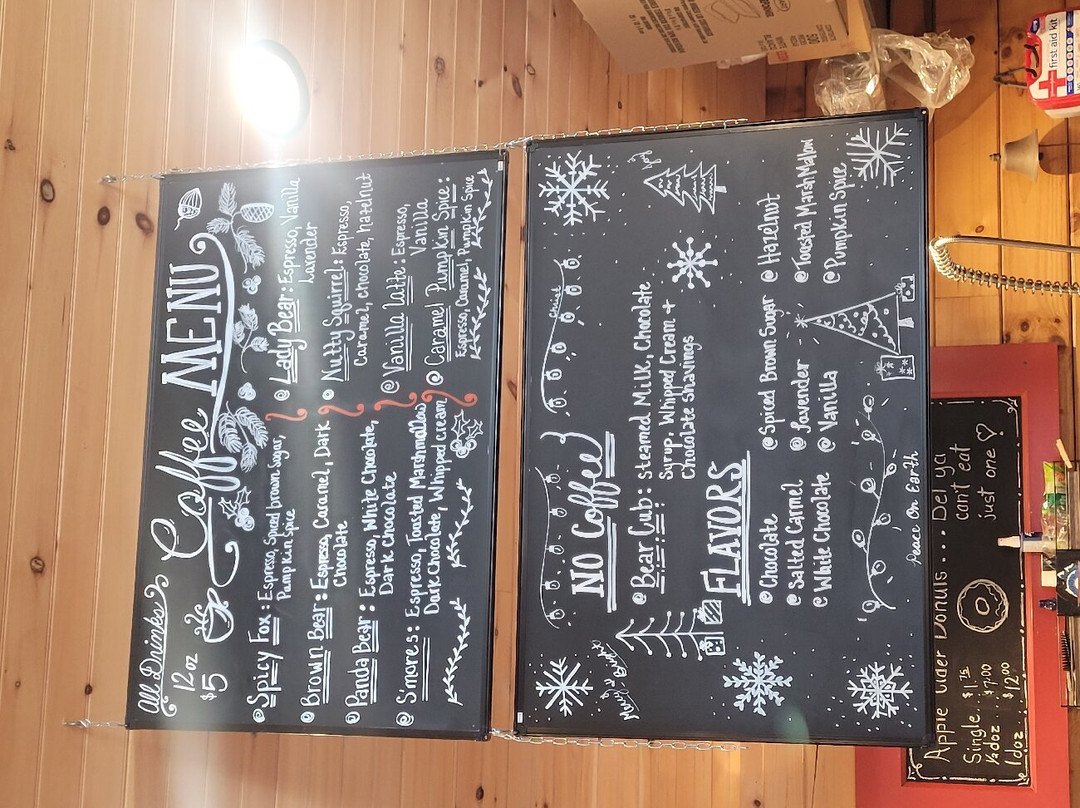 All Drinks
12oz
$5
Coffee MENU
Spicy Fox: Espresso, Spiced brown Sugar,
Pumpkin Spice
Brown Bear: Espresso, Caramel, Dark
Chocolate
Panda Bear: Espresso, White Chocolate,
Dark Chocolate
S'mores: Espresso, Toasted Marshmallow,
Dark Chocolate, Whipped cream
Lady Bear: Espresso, Vanilla
Lavender
Nutty Squirrel: Espresso,
Caramel, Chocolate, hazelnut
Vanilla Latte: Espresso,
Vanilla
Caramel Pumpkin Spice:
Espresso, Caramel, Pumpkin Spice
NO Coffee!
Christ
Bear Cub: Steamed Milk, Chocolate
Syrup, Whipped Cream +
Chocolate Shavings
FLAVORS
Chocolate
Salted Carmel
White Chocolate
Spiced Brown Sugar
Lavender
Vanilla
Hazelnut
Toasted MarshMallow
Pumpkin Spice
Peace On Earth
Apple Cider Donuts.... Bet ya
can't eat
just one
Single $1.75
½ doz $7.00
1 doz $12.00
first aid kit